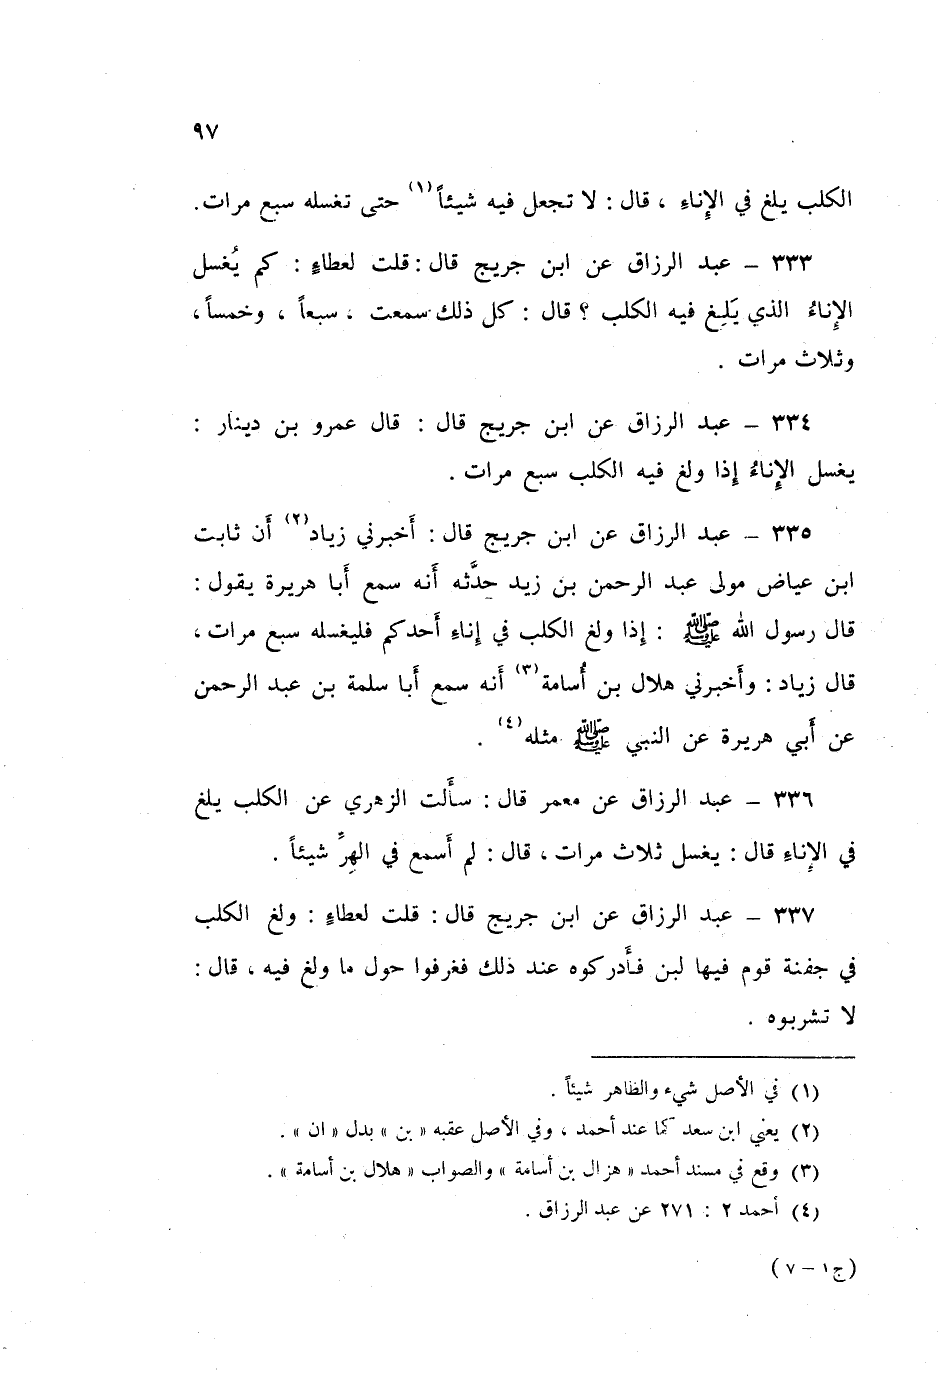 ٩٧
الكلب يلغ في الإناء ، قال : لا تجعل فيه شيئاً(١) حتى تغسله سبع مرات.
٣٣٣ – عبد الرزاق عن ابن جريج قال : قلت لعطاءٍ : كم يُغسل
الإناءُ الذي يَلِغ فيه الكلب ؟ قال : كل ذلك سمعت ، سبعاً ، وخمساً ،
وثلاث مرات .
٣٣٤ – عبد الرزاق عن ابن جريج قال : قال عمرو بن دينار :
يغسل الإناءُ إذا ولغ فيه الكلب سبع مرات .
٣٣٥ – عبد الرزاق عن ابن جريج قال : أخبرني زياد(٢) أن ثابت
ابن عياض مولى عبد الرحمن بن زيد حدَّثه أنه سمع أبا هريرة يقول :
قال رسول الله ﷺ : إذا ولغ الكلب في إناءِ أحدكم فليغسله سبع مرات ،
قال زياد : وأخبرني هلال بن أُسامة(٣) أنه سمع أبا سلمة بن عبد الرحمن
عن أبي هريرة عن النبي ﷺ مثله(٤) .
٣٣٦ – عبد الرزاق عن معمر قال : سألت الزهري عن الكلب يلغ
في الإناءِ قال : يغسل ثلاث مرات ، قال : لم أسمع في الهِرِّ شيئاً .
٣٣٧ – عبد الرزاق عن ابن جريج قال : قلت لعطاءٍ : ولغ الكلب
في جفنة قوم فيها لبن فأدركوه عند ذلك فغرفوا حول ما ولغ فيه ، قال :
لا تشربوه .
(١) في الأصل شيء والظاهر شيئاً .
(٢) يعني ابن سعد كما عند أحمد ، وفي الأصل عقبه « بن » بدل « ان » .
(٣) وقع في مسند أحمد « هزال بن أسامة » والصواب « هلال بن أسامة » .
(٤) أحمد ٢ : ٢٧١ عن عبد الرزاق .
(ج١ – ٧)